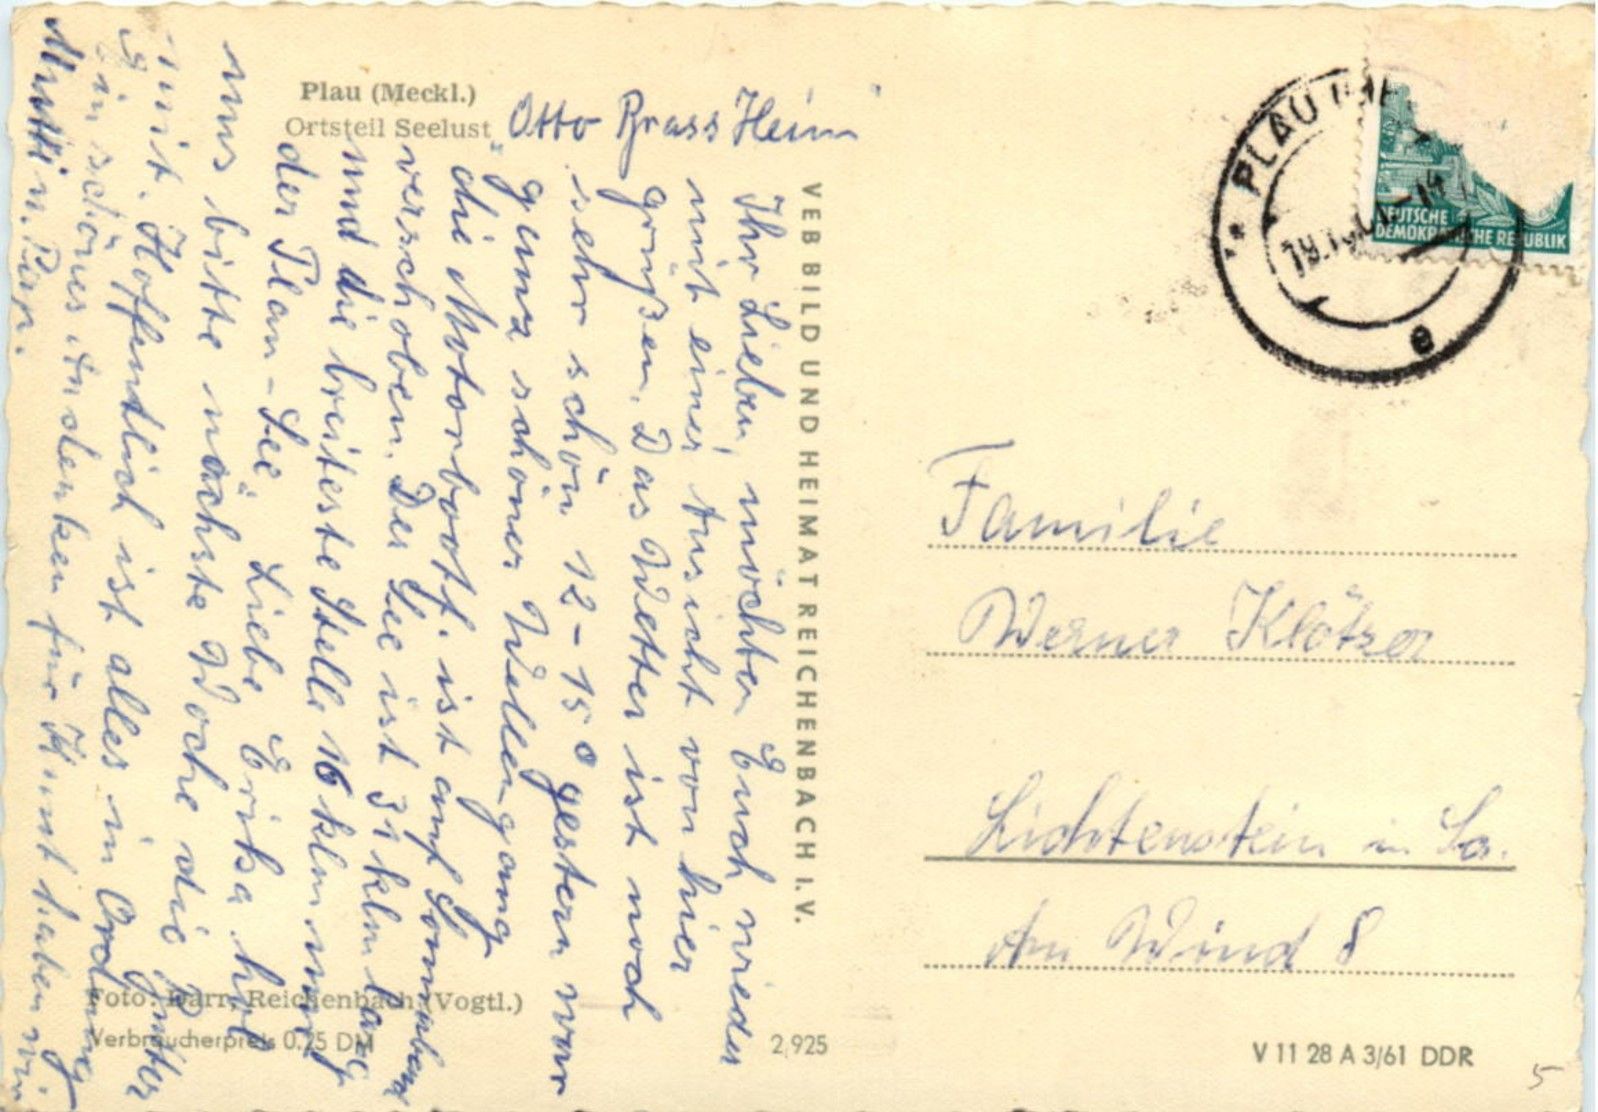 Plau (Meckl.)
Ortsteil Seelust
"Otto Brass Heim"
Ihr Lieben, möchten Euch wieder
mit einer Ansicht von hier
grüßen. Das Wetter ist noch
sehr schön 12-15° gestern war
ganz schöner Wellengang
die Motorbootf. ist auf Sonnabend
verschoben. Der See ist 31 klm lang
und die breiteste Stelle 16 klm
der Plau-See. Liebe Erika hol
uns bitte nächste Woche die Butter
mit. Hoffentlich ist alles in Ordnung
Ein schönes Andenken für Kunt haben wir
Mutti u. Papi.
VEB BILD UND HEIMAT REICHENBACH I. V.
Foto: Darr, Reichenbach (Vogtl.)
Verbraucherpreis 0,25 DM
2,925
PLAU
19.
-14
e
DEUTSCHE
DEMOKRATISCHE REPUBLIK
Familie
Werner Klötzer
Lichtenstein in Sa.
Am Wind 8
V 11 28 A 3/61 DDR
5